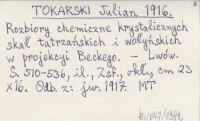 TOKARSKI Julian 1916.
Rozbiory chemiczne krystalicznych
skał tatrzańskich i wołyńskich
w projekcyi Beckego. — Lwów.
S. 510-536, il., Zsf., okł., cm 23
X16. Odb. z: jw. 1917. MT